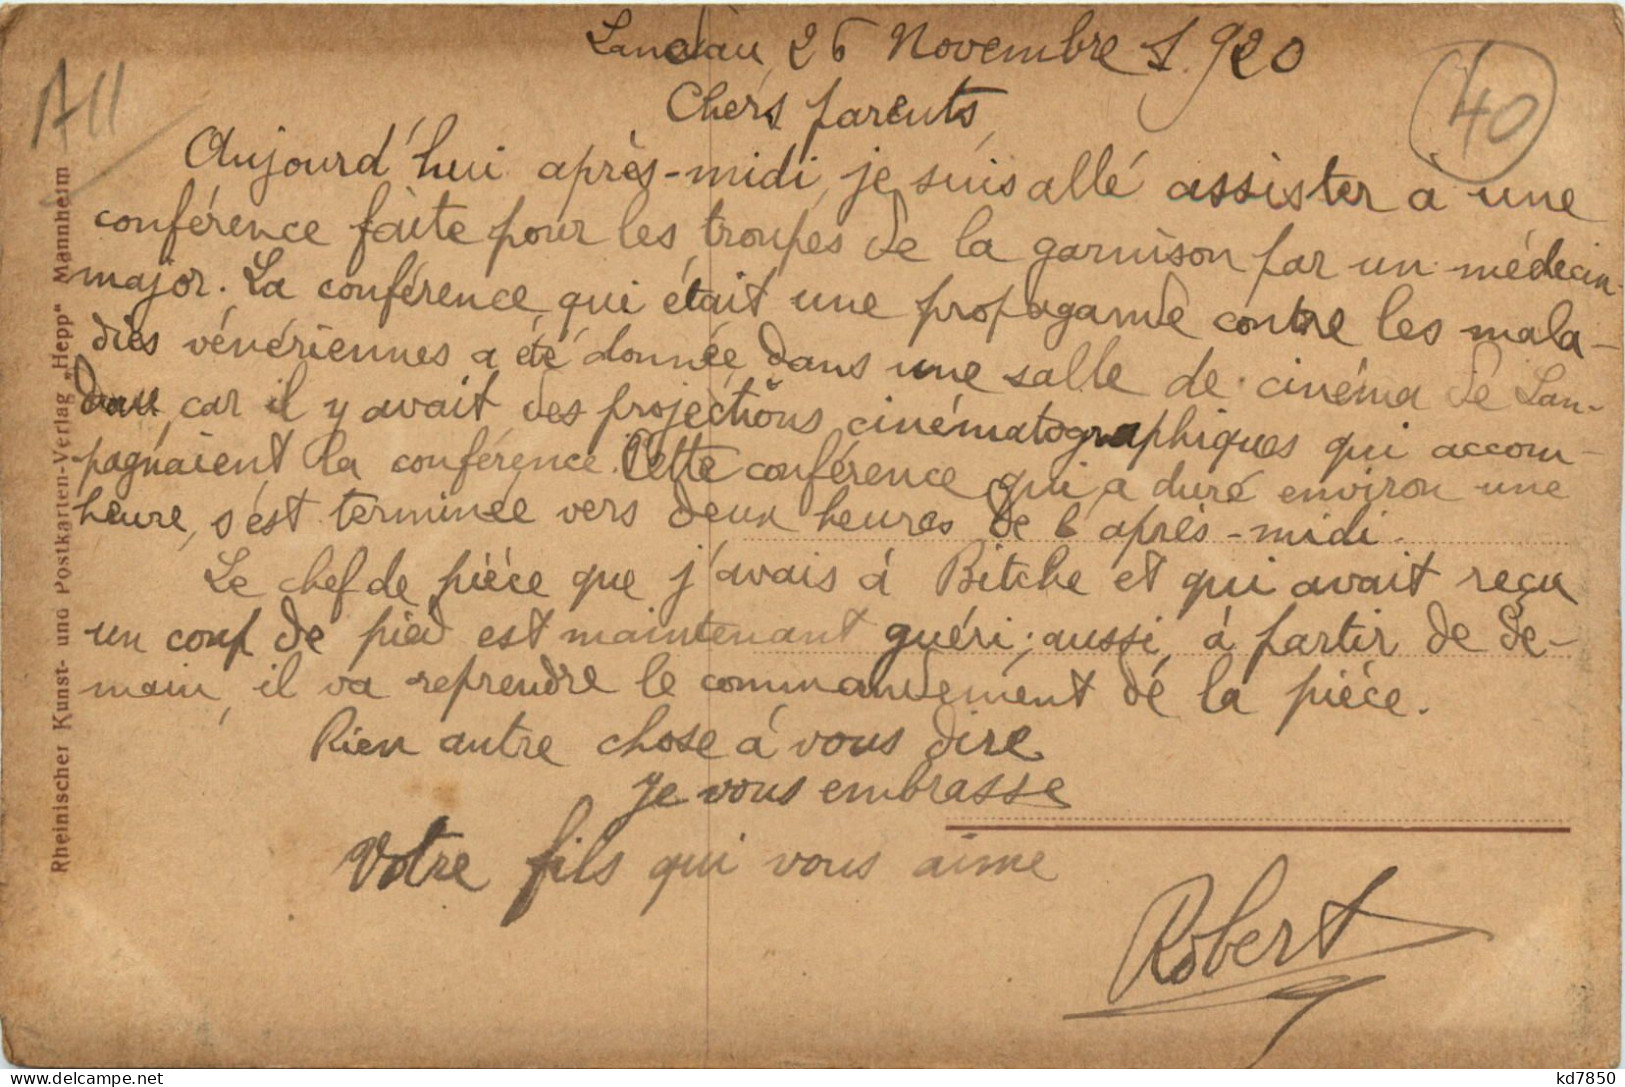 Landau, 26 Novembre 1920
Chers parents,
Aujourd'hui après-midi, je suis allé assister a une
conférence faite pour les troupes de la garnison par un médecin-
major. La conférence, qui était une propagande contre les mala-
dies vénériennes a été donnée dans une salle de cinéma de Lan-
dau, car il y avait des projections cinématographiques qui accom-
pagnaient la conférence. Cette conférence qui a duré environ une
heure, s'est terminée vers deux heures de l'après-midi.
Le chef de pièce que j'avais à Bitche et qui avait reçu
un coup de pied est maintenant guéri; aussi, à partir de de-
main, il va reprendre le commandement de la pièce.
Rien autre chose à vous dire
Je vous embrasse
Votre fils qui vous aime
Robert
A11
40
Rheinischer Kunst- und Postkarten-Verlag „Hepp“ Mannheim
kd7850